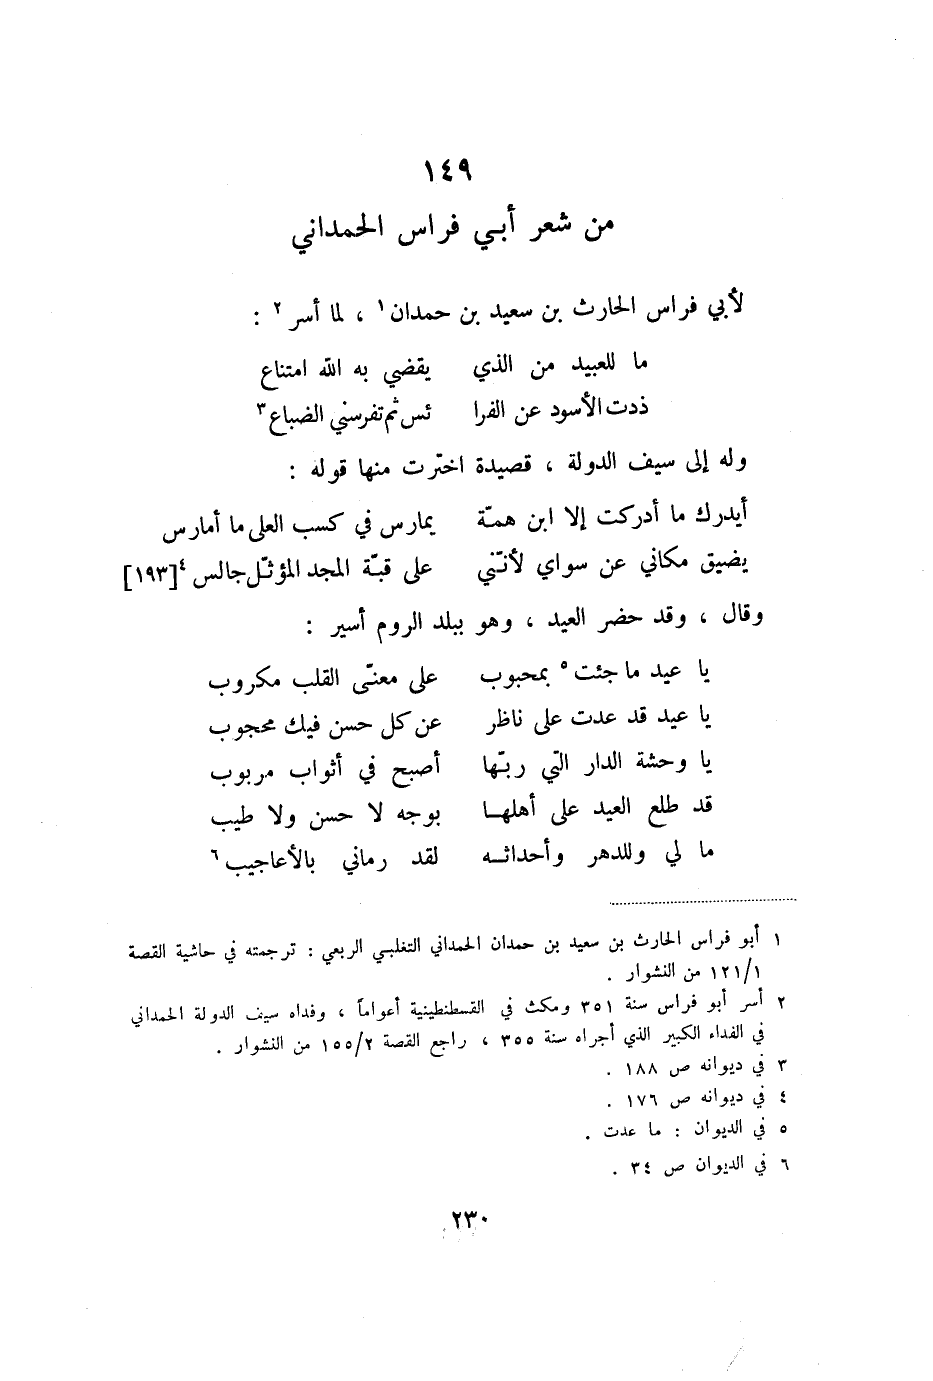 ١٤٩
من شعر أبي فراس الحمداني
لأبي فراس الحارث بن سعيد بن حمدان ١ ، لما أسر ٢ :
ما للعبيد من الذي يقضي به الله امتناع
ذدت الأسود عن الفرا ئس ثم تفرسني الضباع ٣
وله إلى سيف الدولة ، قصيدة اخترت منها قوله :
أيدرك ما أدركت إلا ابن همّة يمارس في كسب العلى ما أمارس
يضيق مكاني عن سواي لأنّني على قبّة المجد المؤثّل جالس ٤ [١٩٣]
وقال ، وقد حضر العيد ، وهو ببلد الروم أسير :
يا عيد ما جئت ٥ بمحبوب على معنّى القلب مكروب
يا عيد قد عدت على ناظر عن كل حسن فيك محجوب
يا وحشة الدار التي ربّها أصبح في أثواب مربوب
قد طلع العيد على أهلها بوجه لا حسن ولا طيب
ما لي وللدهر وأحداثه لقد رماني بالأعاجيب ٦
١ أبو فراس الحارث بن سعيد بن حمدان الحمداني التغلبي الربعي : ترجمته في حاشية القصة
١٢١/١ من النشوار .
٢ أسر أبو فراس سنة ٣٥١ ومكث في القسطنطينية أعواماً ، وفداه سيف الدولة الحمداني
في الفداء الكبير الذي أجراه سنة ٣٥٥ ، راجع القصة ١٥٥/٢ من النشوار .
٣ في ديوانه ص ١٨٨ .
٤ في ديوانه ص ١٧٦ .
٥ في الديوان : ما عدت .
٦ في الديوان ص ٣٤ .
٢٣٠